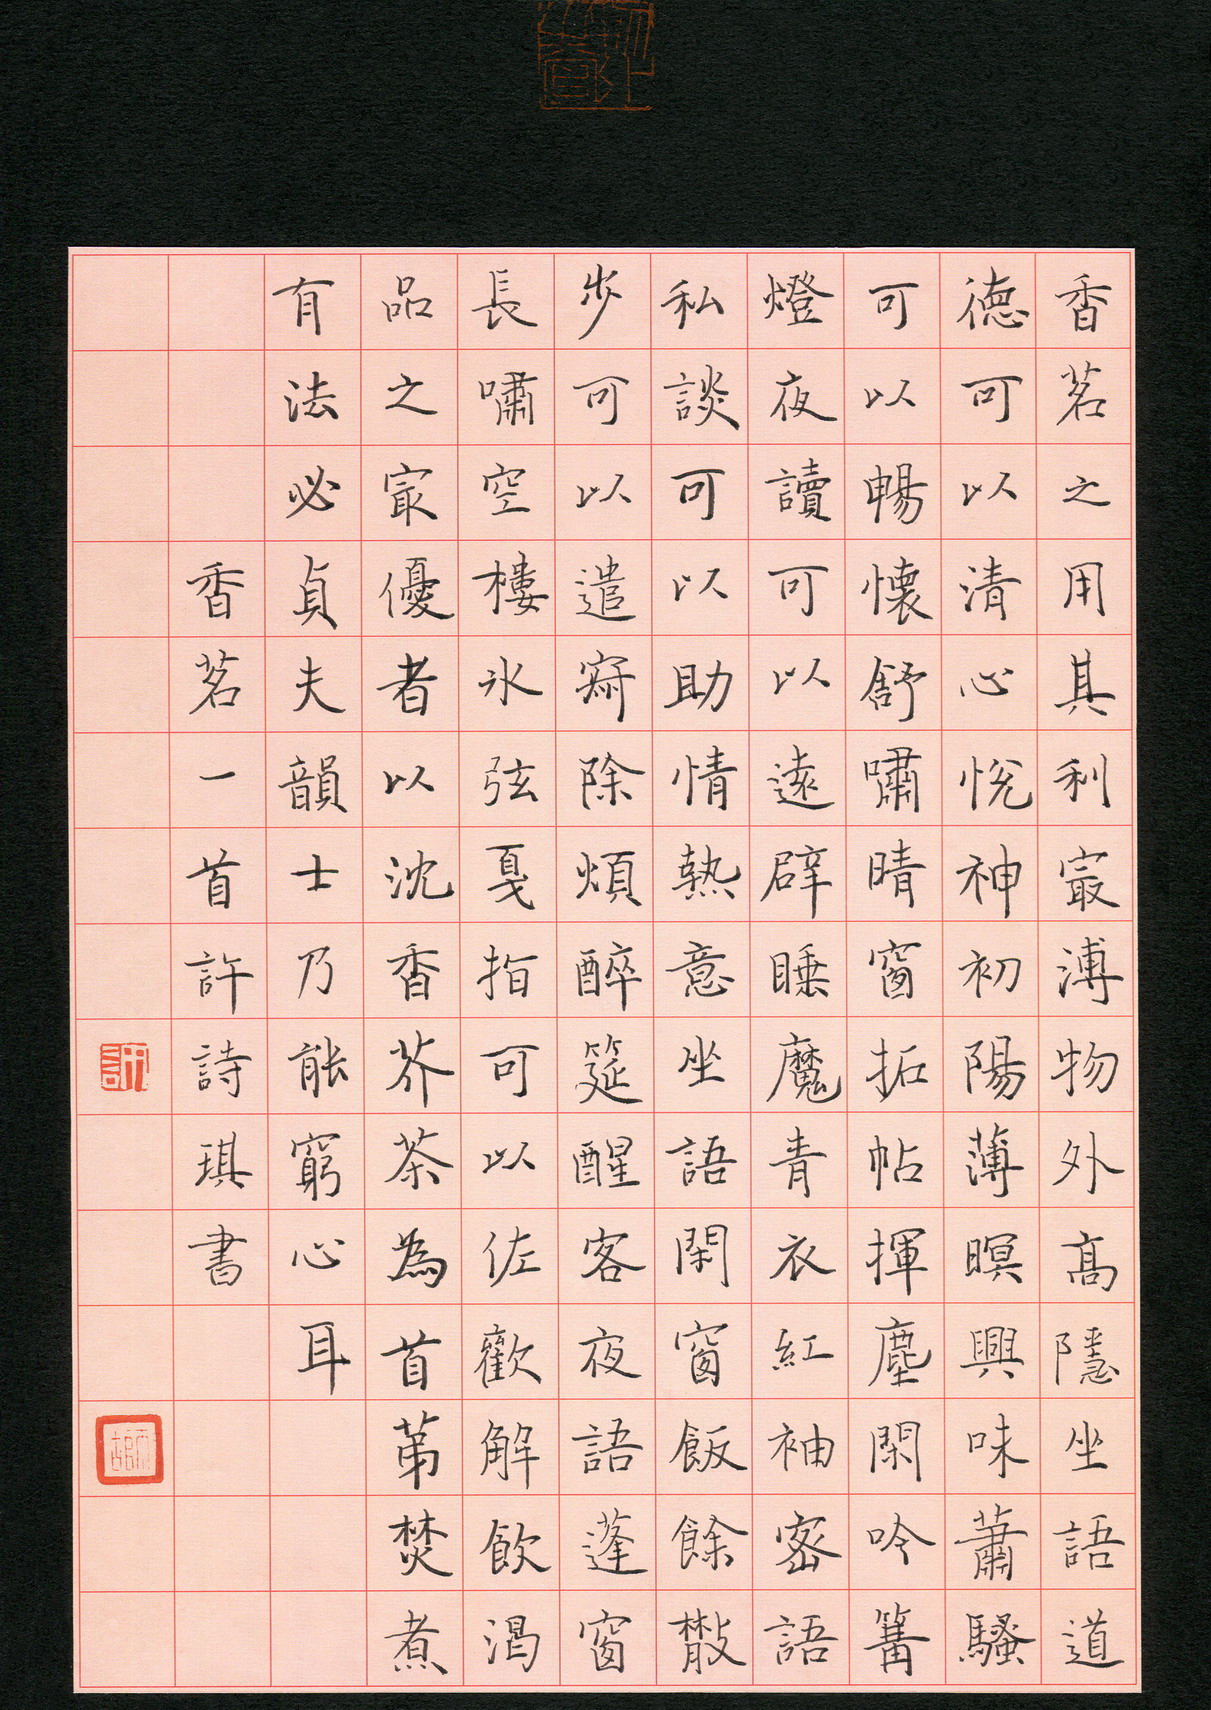 香茗之用其利㝡溥物外高隱坐語道
德可以清心悅神初陽薄暝興味蕭騷
可以暢懷舒嘯晴窗拓帖揮塵閑吟篝
燈夜讀可以遠辟睡魔青衣紅袖密語
私談可以助情熱意坐語閑窗飯餘散
步可以遣寂除煩醉筵醒客夜語蓬窗
長嘯空樓冰弦戛指可以佐歡解飲渴
品之㝡優者以沈香芥茶為首第焚煮
有法必貞夫韻士乃能窮心耳
香茗一首許詩琪書